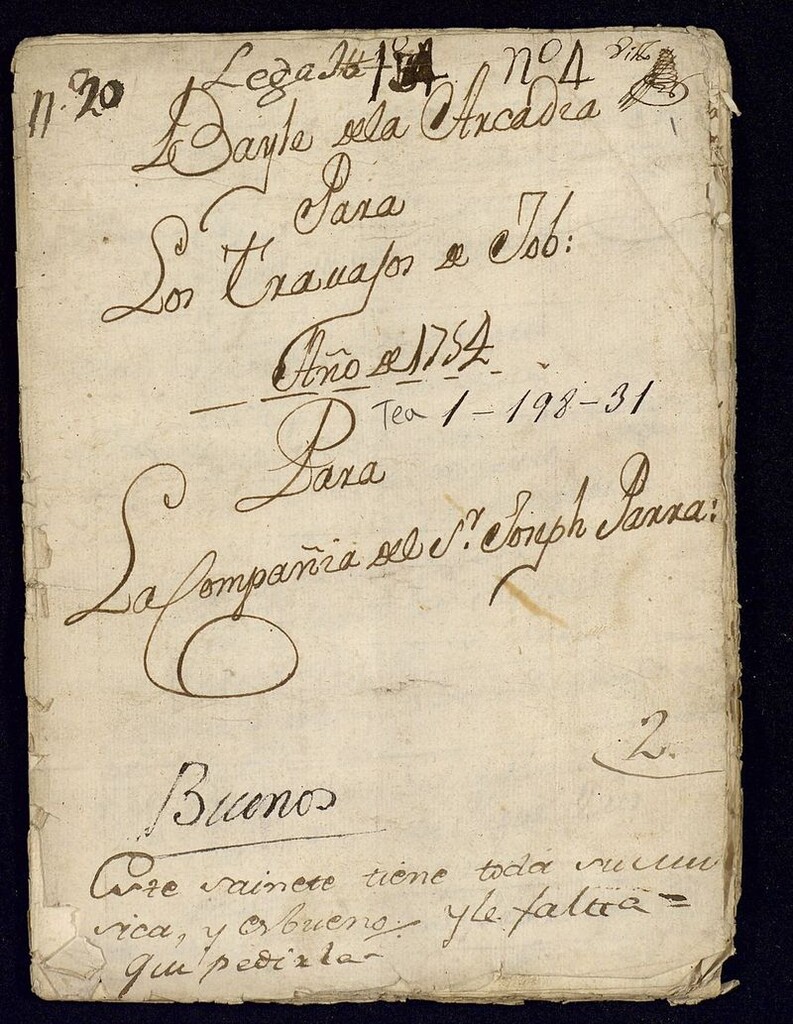 n.º 20
Legajo 1º nº 4
Bayle de la Arcadia
Para
Los Travajos de Job:
Año de 1754
Tea 1-198-31
Para
La Compañia del Sr. Joseph Parra:
2.
Buenos
Este sainete tiene toda su mu
sica, y es bueno. y le falta =
que pedirla